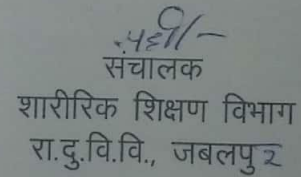 संचालक
शारीरिक शिक्षण विभाग
रा.दु.वि.वि., जबलपुर